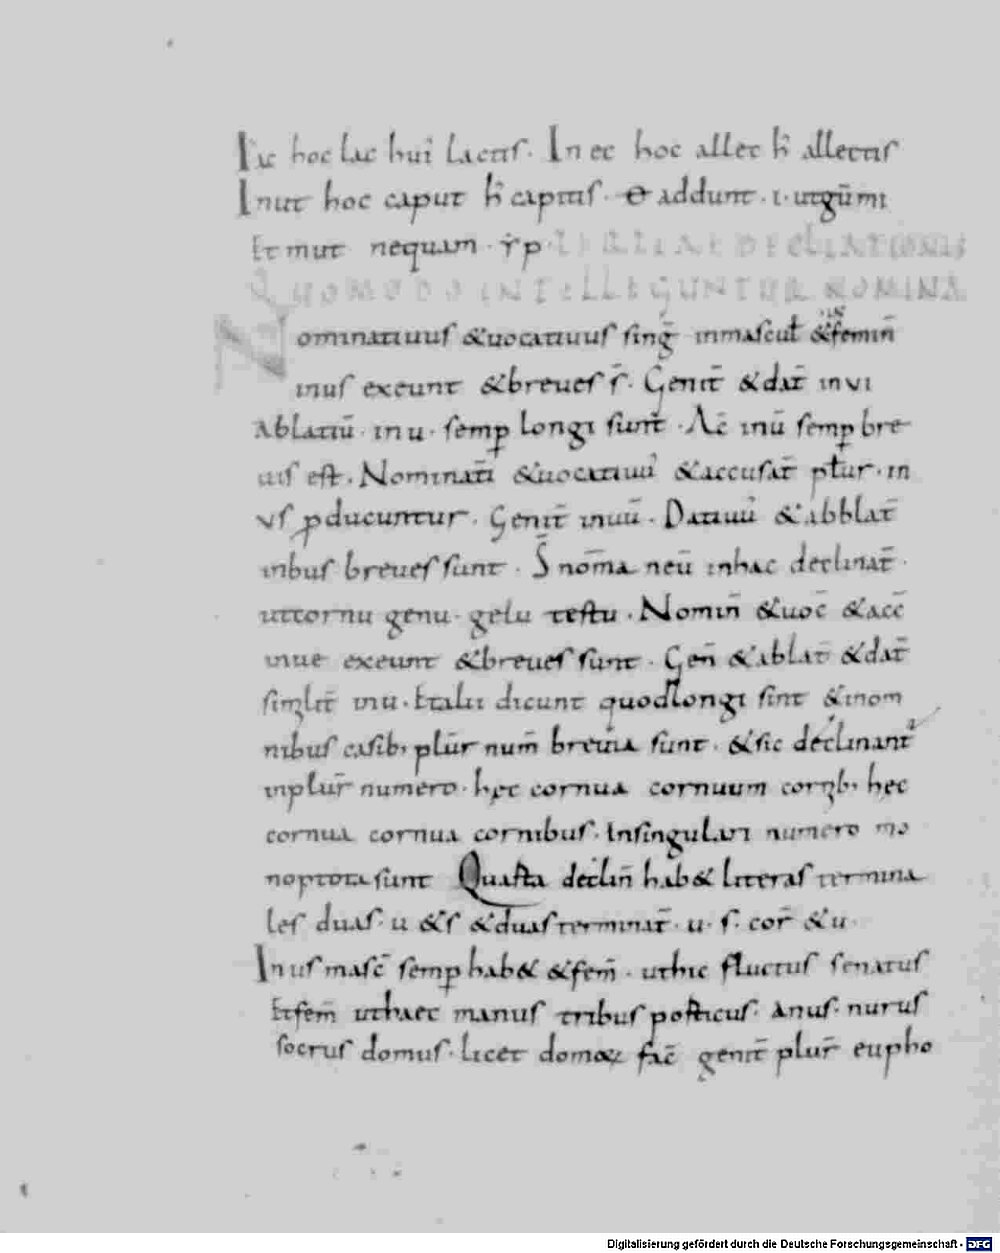 Ic hoc lac hui' lactis. In ec hoc allec h' allectis
Inut hoc caput h' capitis. & addunt .i. ut gūmi
Et in ut nequam
QUOMODO INTELLEGUNTUR NOMINA
Nominatiuus &uocatiuus sinḡ inmascuł &femiñ
inus exeunt &breues s̄. Genit̄ &dat̄ in vi
Ablatiū. in u. semꝑ longi sunt. Ac̄ inū semꝑ bre
uis est. Nominati &uocatiui &accusat̄ plur. in
vs ꝓducuntur. Genit̄ inuū. Datiuū &abblat̄
inbus breues sunt. S̄ nom̄a neū inhac declinat̄.
utcornu genu. gelu testu. Nomiñ &uoc̄ &acc̄
inue exeunt &breues sunt. Geñ &ablat̄ &dat̄
simlit̄ inu. Et alii dicunt quodlongi sint &inom
nibus casib; plur̄ num̄ breuia sunt. &sic declinant
inplur̄ numero. hęc cornua cornuum cornib; hęc
cornua cornua cornibus. Insingulari numero mo
noptota sunt Quarta decliñ hab& literas termina
les duas. u &s &duas terminat̄. u. s. cor̄ &u.
In us masc̄ semꝑ hab& &fem̄. uthic fluctus senatus
Et fem̄ uthaec manus tribus posticus. anus. nurus
socrus domus. licet domoꝝ fac̄ genit̄ plur̄ eupho
Digitalisierung gefördert durch die Deutsche Forschungsgemeinschaft - DFG